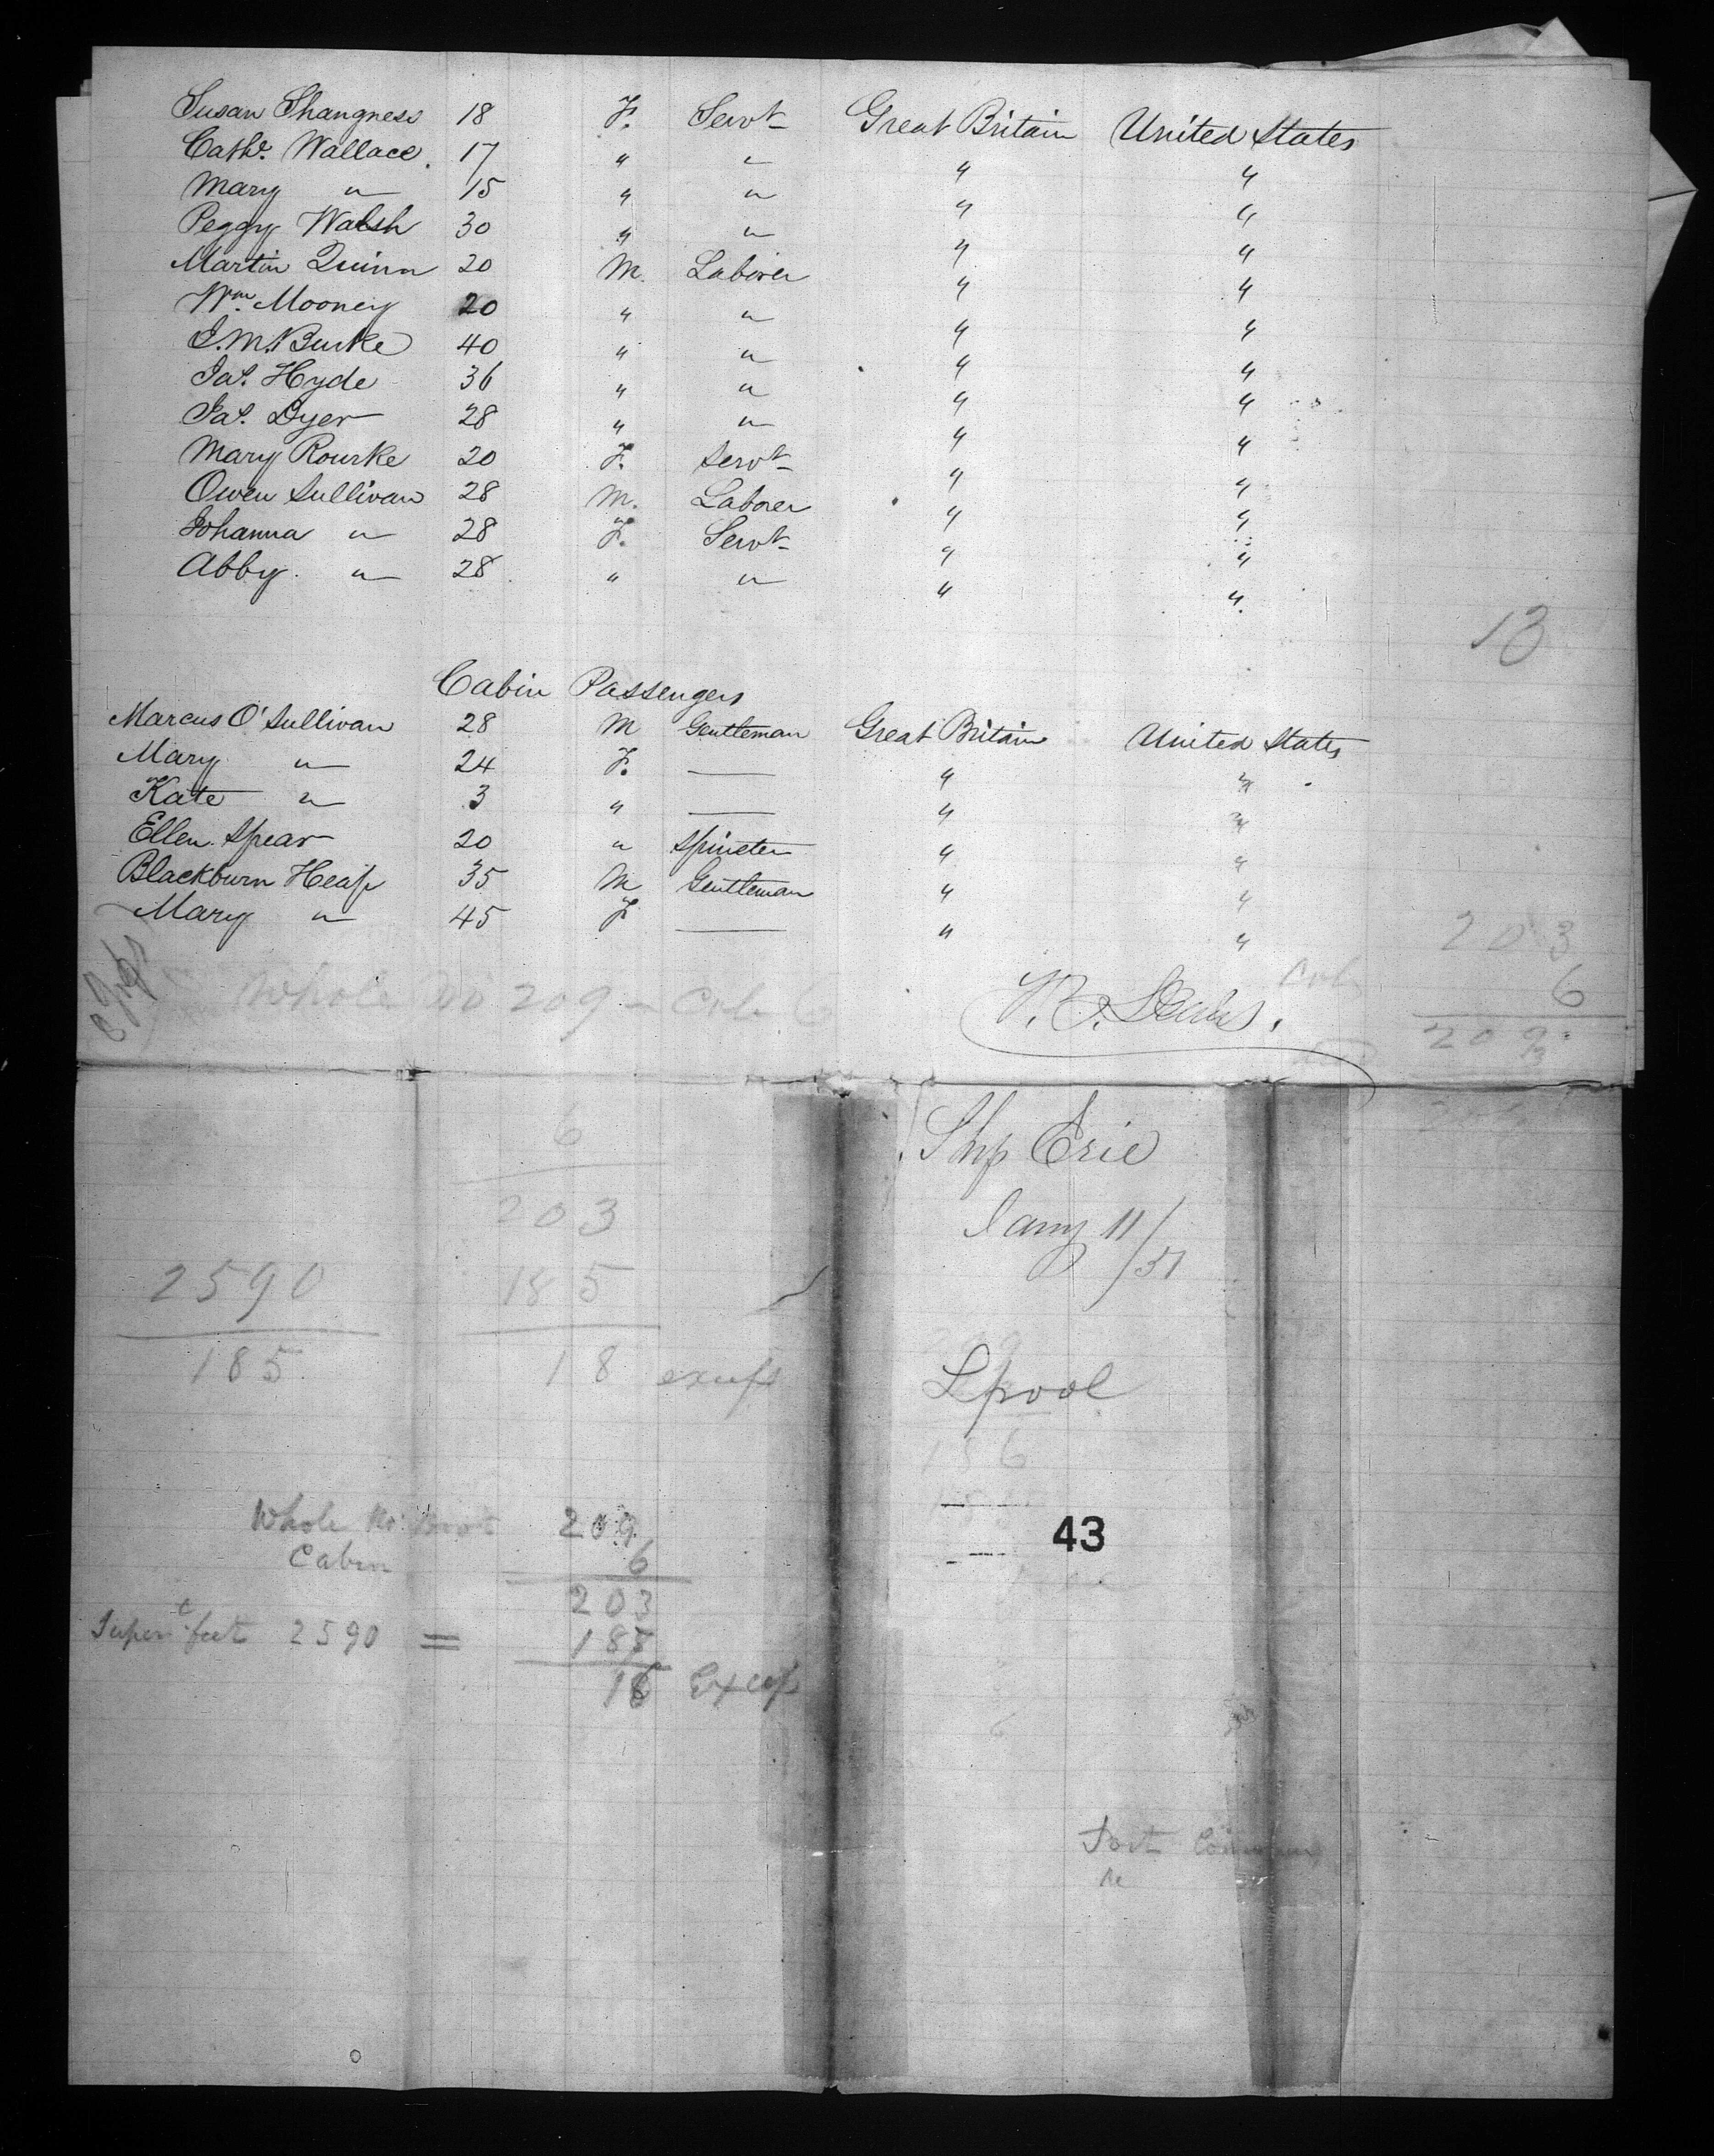 Susan Shangness 18 F. Servt Great Britain United States
Cathe. Wallace. 17 " " " "
Mary " 15 " " " "
Peggy Walsh 30 " " " "
Martin Quinn 20 M Laborer " "
Wm. Mooney 20 " " " "
J.M. Burke 40 " " " "
Jas. Hyde 36 " " " "
Jas. Dyer 28 " " " "
Mary Rourke 20 F. Servt " "
Owen Sullivan 28 M. Laborer " "
Johanna " 28 F. Servt " "
Abby. " 28 " " " "
13
Cabin Passengers
Marcus O'Sullivan 28 M Gentleman Great Britain United States
Mary " 24 F. — " "
Kate " 3 " — " "
Ellen Spear 20 " Spinster " "
Blackburn Heap 35 M Gentleman " "
Mary " 45 F — " "
203
6
209
Whole No 209 - Cab 6
Ship Erie
Jany 11/51
6
203
2590 185
185 18 excess
Lpool
186
43
Whole No 209
Cabin 6
203
Super feet 2590 = 187
16 Excess